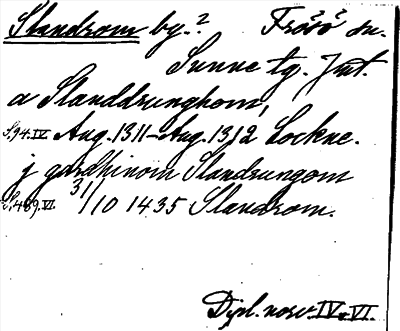 Slandrom by.? Frösö sn.
Sunne tg. Jmt.
a Slanddrunghom,
S.94.IV Aug. 1311-Aug. 1312 Lockne.
j gardhinom Slandrungom
S.489.VI. 31/10 1435 Slandrom.
Dipl. norv. IV o. VI.